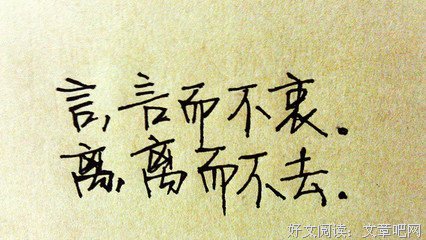 言,言而不衷。
离,离而不去。
好文阅读：文章吧网